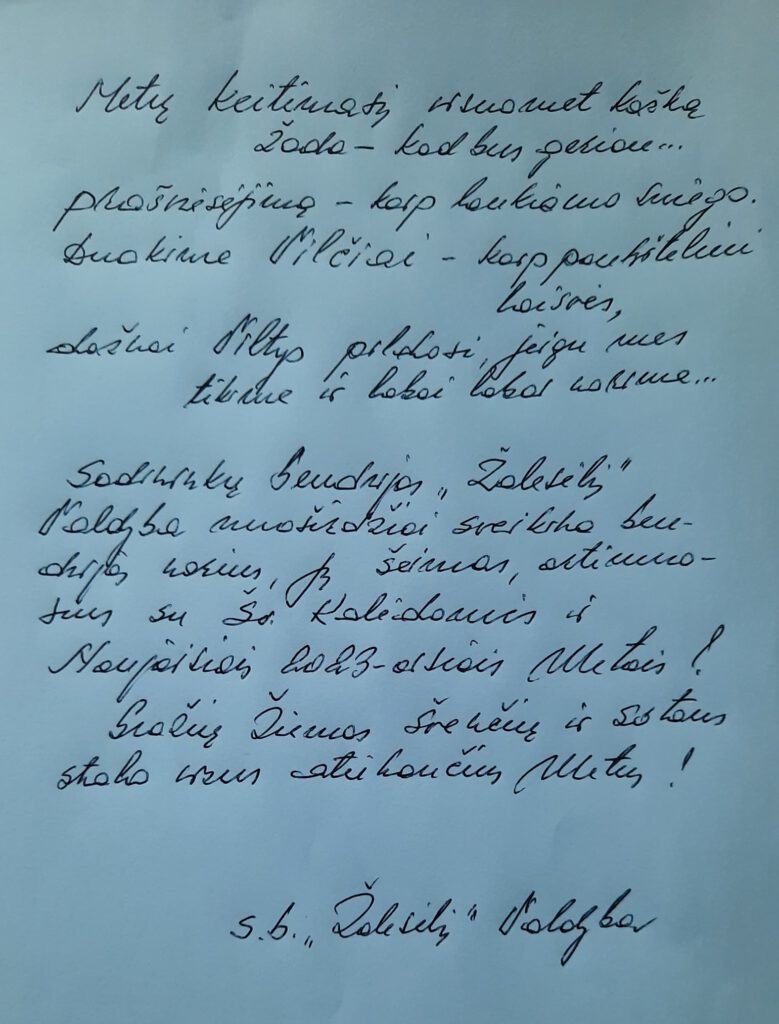 Metų keitimasį visuomet kažką
žada – kad bus geriau...
prašviesėjimą – kaip laukiamo sniego.
Duokime Vilčiai – kaip paukšteliui
laisvės,
dažnai Viltys pildosi, jeigu mes
tikime ir labai labai norime...
Sodininkų bendrijos „Žalesėlį"
Valdyba nuoširdžiai sveikina ben-
drijos narius, jų šeimas, artimuo-
sius su Šv. Kalėdomis ir
Naujaisiais 2023-aisiais Metais!
Gražių Žiemos švenčių ir sotaus
stalo visus ateinančius Metus!
s.b. „Žalesėlį" Valdyba